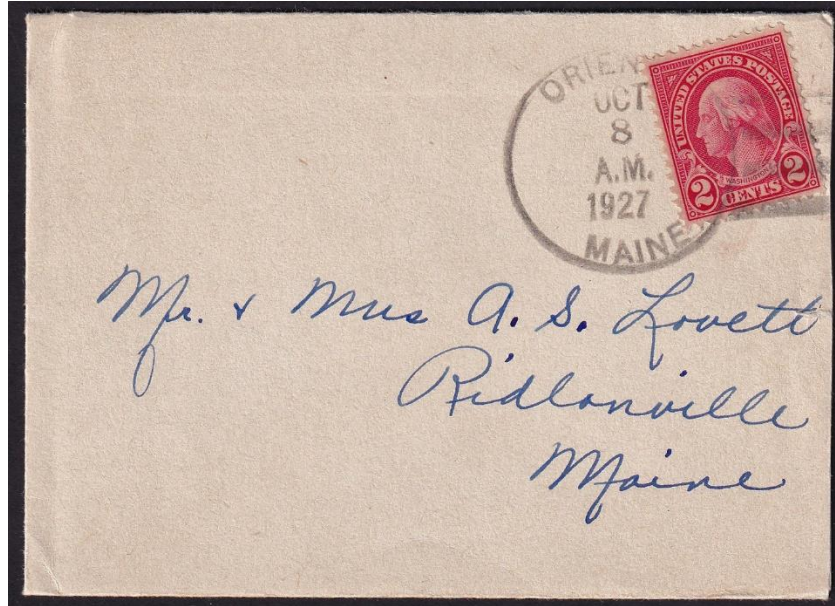 ORIEN
OCT
8
A.M.
1927
MAINE
UNITED STATES POSTAGE
WASHINGTON
2 CENTS 2
Mr. & Mrs A. S. Lovett
Ridlonville
Maine